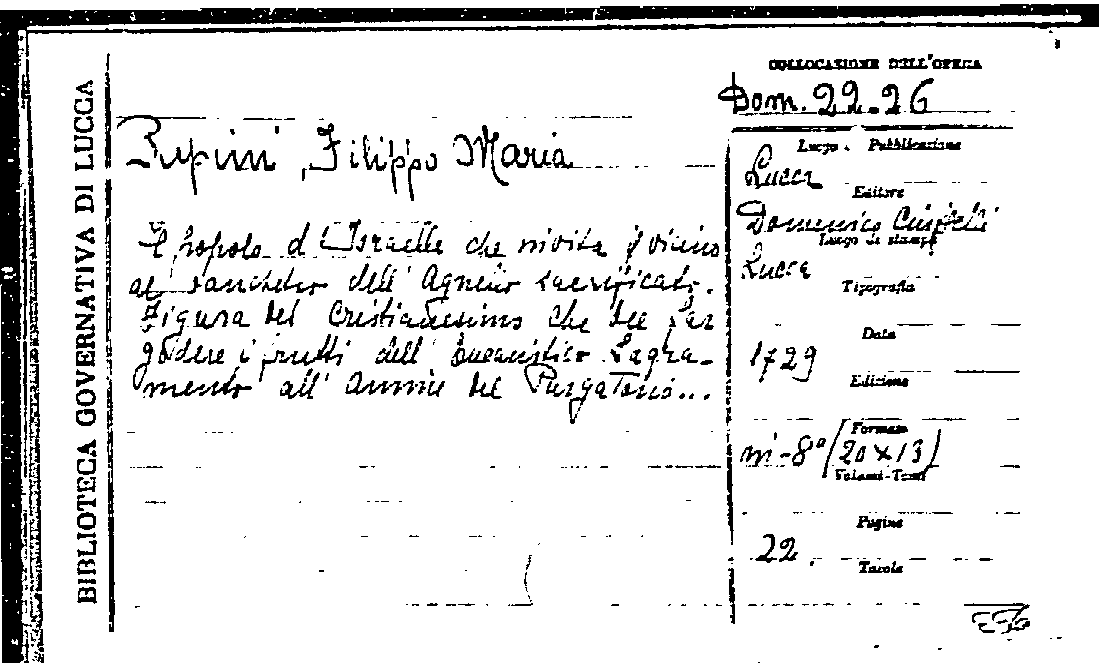 BIBLIOTECA GOVERNATIVA DI LUCCA
COLLOCAZIONE DELL'OPERA
Dom. 22.26
Filippo Maria
Il popolo d'Israelle che invita il vicino
al banchetto dell'Agnello sacrificato.
Figura del Cristianesimo che dee far
godere i frutti dell'Eucaristico Sagra-
mento all'Anime del Purgatorio...
Luogo . Pubblicazione
Lucca
Editore
Domenico
Luogo di stampa
Lucca
Tipografia
Data
1729
Edizione
Formato
in-8° (20 x 13)
Volumi-Tomi
Pagine
22.
Tavole